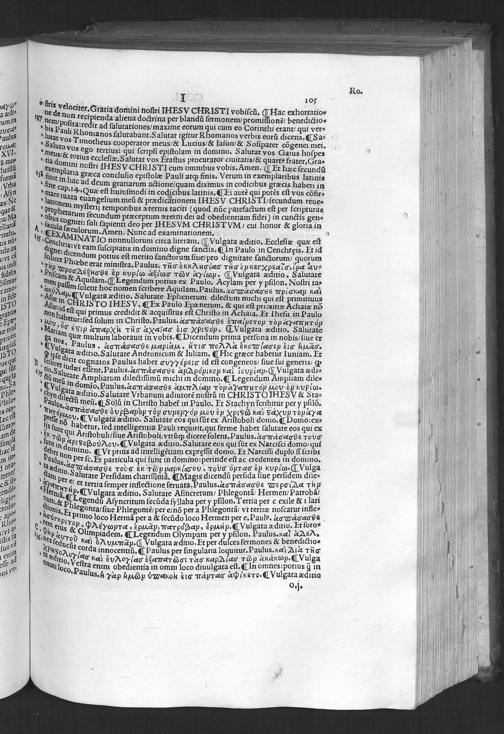 Ro.
I
105
stris velociter. Gratia domini nostri IHESV CHRISTI vobiscū. ¶ Hac exhortatio
ne de non recipienda aliena doctrina per blandū sermonem/promissionē: benedictio
nem/posita: redit ad salutationes/maxime eorum qui cum eo Corinthi erant/qui ver-
bis Pauli Rhomanos salutabant. Salutat igitur Rhomanos verbis eorū dicens. ¶ Sa-
lutat vos Timotheus cooperator meus/& Lucius & Iason/& Sosipater cōgnei mei.
Saluto vos ego tertius: qui scripsi epistolam in domino. Salutat vos Gaius hospes
meus/& totius ecclesiæ. Salutat vos Erastus procurator ciuitatis/& quartᵒ frater. Gra-
tia domini nostri IHESV CHRISTI cum omnibus vobis. Amen. ¶ Et hæc secundū
exemplaria græca conclusio epistolæ Pauli atqȝ finis. Verum in exemplaribus latinis
sunt in hac ad deum gratiarum actione/quam diximus in codicibus græcis haberi in
fine cap. 14. Quæ est huiusmodi in codicibus latinis. ¶ Ei autē qui potēs est vos cōfir-
mare iuxta euangelium meū & prædicationem IHESV CHRISTI/secundum reue-
lationem mysterij temporibus æternis taciti (quod nūc patefactum est per scripturas
prophetarum secundum præceptum æterni dei ad obedientiam fidei) in cunctis gen-
tibus cogniti: soli sapienti deo per IHESVM CHRISTVM/cui honor & gloria in
sæcula sæculorum. Amen. Nunc ad examinationem.
EXAMINATIO nonnullorum circa literam. ¶ Vulgata æditio. Ecclesiæ quæ est
Cenchris/vt eam suscipiatis in domino digne sanctis. ¶ In Paulo in Cenchreis. Et id
Priscam & Aquilam. ¶ Legendum potius ex Paulo, Acylam per y psilon. Nostri ta-
men passim solent hoc nomen scribere Aquilam. Paulus. ἀσπάσασθε πρίσκαν καὶ
ἀκύλαν. ¶ Vulgata æditio. Salutate Ephenetum dilectum michi qui est primitiuus
Asiæ in CHRISTO IHESV. ¶ Ex Paulo Epænetum, & qui est primitiæ Achaiæ
Asiæ/id est qui primus credidit & acquisitus est Christo in Achaia. Et Ihesu in Paulo
non habetur: sed solum in Christo. Paulus. ἀσπάσασθε ἐπαίνετον τὸν ἀγαπητόν
μου, ὅς ἐστιν ἀπαρχὴ τῆς ἀχαίας εἰς χριστόν. ¶ Vulgata æditio. Salutate
Mariam quæ multum laborauit in vobis. ¶ Dicendum prima persona in nobis/siue er
ga nos. Paulus. ἀσπάσασθε μαριάμ, ἥτις πολλὰ ἐκοπίασεν εἰς ἡμᾶς.
¶ Vulgata æditio. Salutate Andronicum & Iuliam. ¶ Hic græce habetur Iuniam. Et
tio. Salutate Ampliatum dilectissimū michi in domino. ¶ Legendum Ampliam dile-
ctū meū in domino. Paulus. ἀσπάσασθε ἀμπλίαν τὸν ἀγαπητόν μου ἐν κυρίῳ.
¶ Vulgata æditio. Salutate Vrbanum adiutorē nostrū in CHRISTO IHESV & Sta-
chyn dilectū meū. ¶ Solū in Christo habet in Paulo. Et Stachyn scribitur per y psilō.
Paulus. ἀσπάσασθε οὐρβανὸν τὸν συνεργόν μου ἐν χριστῷ καὶ στάχυν τὸν ἀγα
πητόν μου. ¶ Vulgata æditio. Salutate eos qui sūt ex Aristoboli domo. ¶ Domo: ex-
presse nō habetur, sed intelligentia Pauli requirit, qui ferme habet salutate eos qui ex
ijs sunt qui Aristoboli/siue Aristobuli. vtrūqȝ dicere solent. Paulus. ἀσπάσασθε τοὺς
ἐκ τῶν ἀριστοβούλου. ¶ Vulgata æditio. Salutate eos qui sūt ex Narcissi domo qui
sunt in domino. ¶ Vt prius ad intelligētiam expressit domo. Et Narcissi duplo ss scribi
debet non per sc. Et particula qui sunt in domino: perinde est ac credentes in domino.
Paulus. ἀσπάσασθε τοὺς ἐκ τῶν ναρκίσσου, τοὺς ὄντας ἐν κυρίῳ. ¶ Vulga
ta æditio. Salutate Persidam charissimā. ¶ Magis dicendū persida siue persidem dice-
ἀγαπητήν. ¶ Vulgata æditio. Salutate Asincretum/Phlegontā/Hermen/Patrobā/
Hermā. ¶ Legendū Asyncritum secūda syllaba per y psilon. Tertia per e exile & i lati
num, & Phlegonta/siue Phlegontē/
ἀσύγκριτον, φλέγοντα, ἑρμᾶν, πατρόβαν, ἑρμῆν. ¶ Vulgata æditio. Et soro-
rem eius & Olimpiadem. ¶ Legendum Olympam per y psilon. Paulus. καὶ ἀδελ.
φὴν αὐτοῦ καὶ ὀλυμπᾶν. ¶ Vulgata æditio. Et per dulces sermones & benedictio-
nes seducūt corda innocentiū. ¶ Paulus per singularia loquitur. Paulus. καὶ διὰ τῆς
χρηστολογίας καὶ εὐλογίας ἐξαπατῶσι τὰς καρδίας τῶν ἀκάκων. ¶ Vulga
ta æditio. Vestra enim obedientia in omni loco diuulgata est. ¶ In omnes: potius qȝ in
omni loco. Paulus. ἡ γὰρ ὑμῶν ὑπακοὴ εἰς πάντας ἀφίκετο. ¶ Vulgata æditio
o.j.